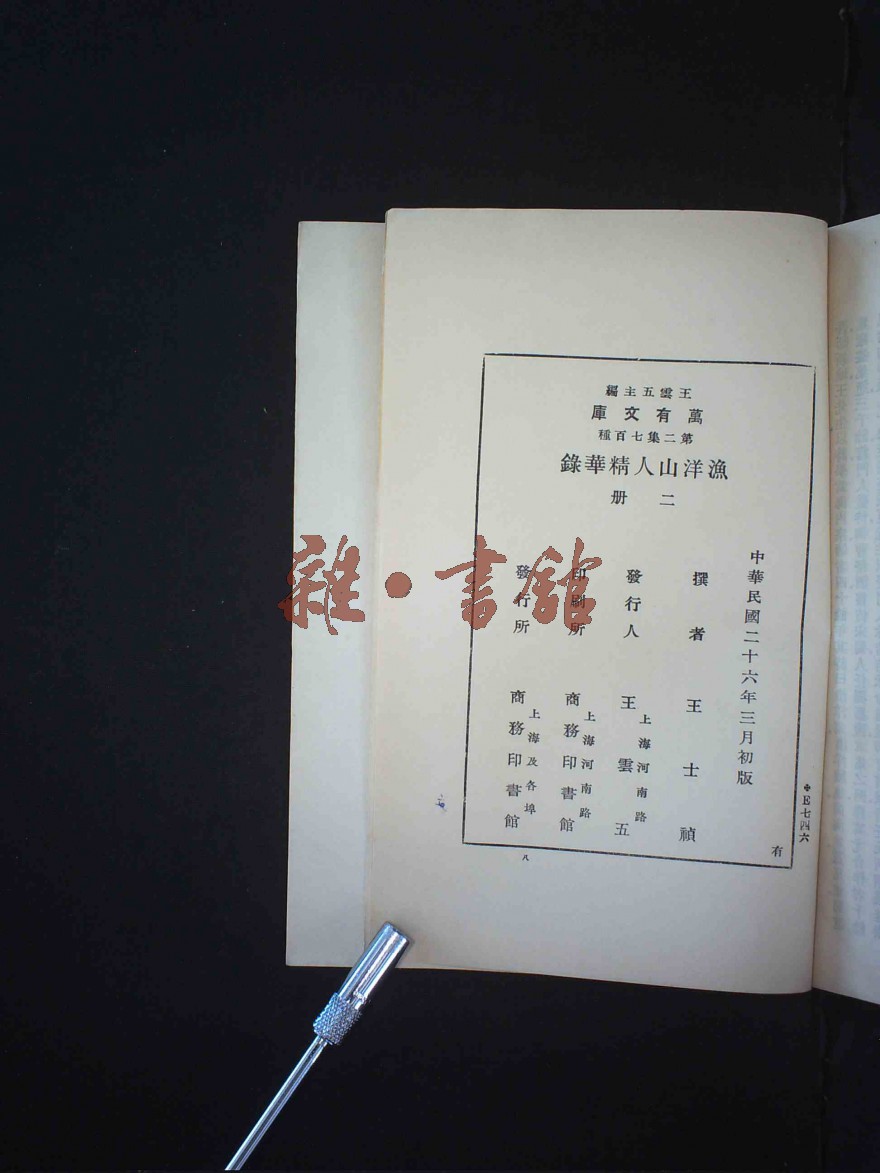 王雲五主編
萬有文庫
第二集七百種
漁洋山人精華錄
二册
中華民國二十六年三月初版
撰者 王士禎
發行人 王雲五
上海河南路
印刷所 商務印書館
上海河南路
發行所 商務印書館
上海及各埠
✤E七四六
有
八
雜·書館